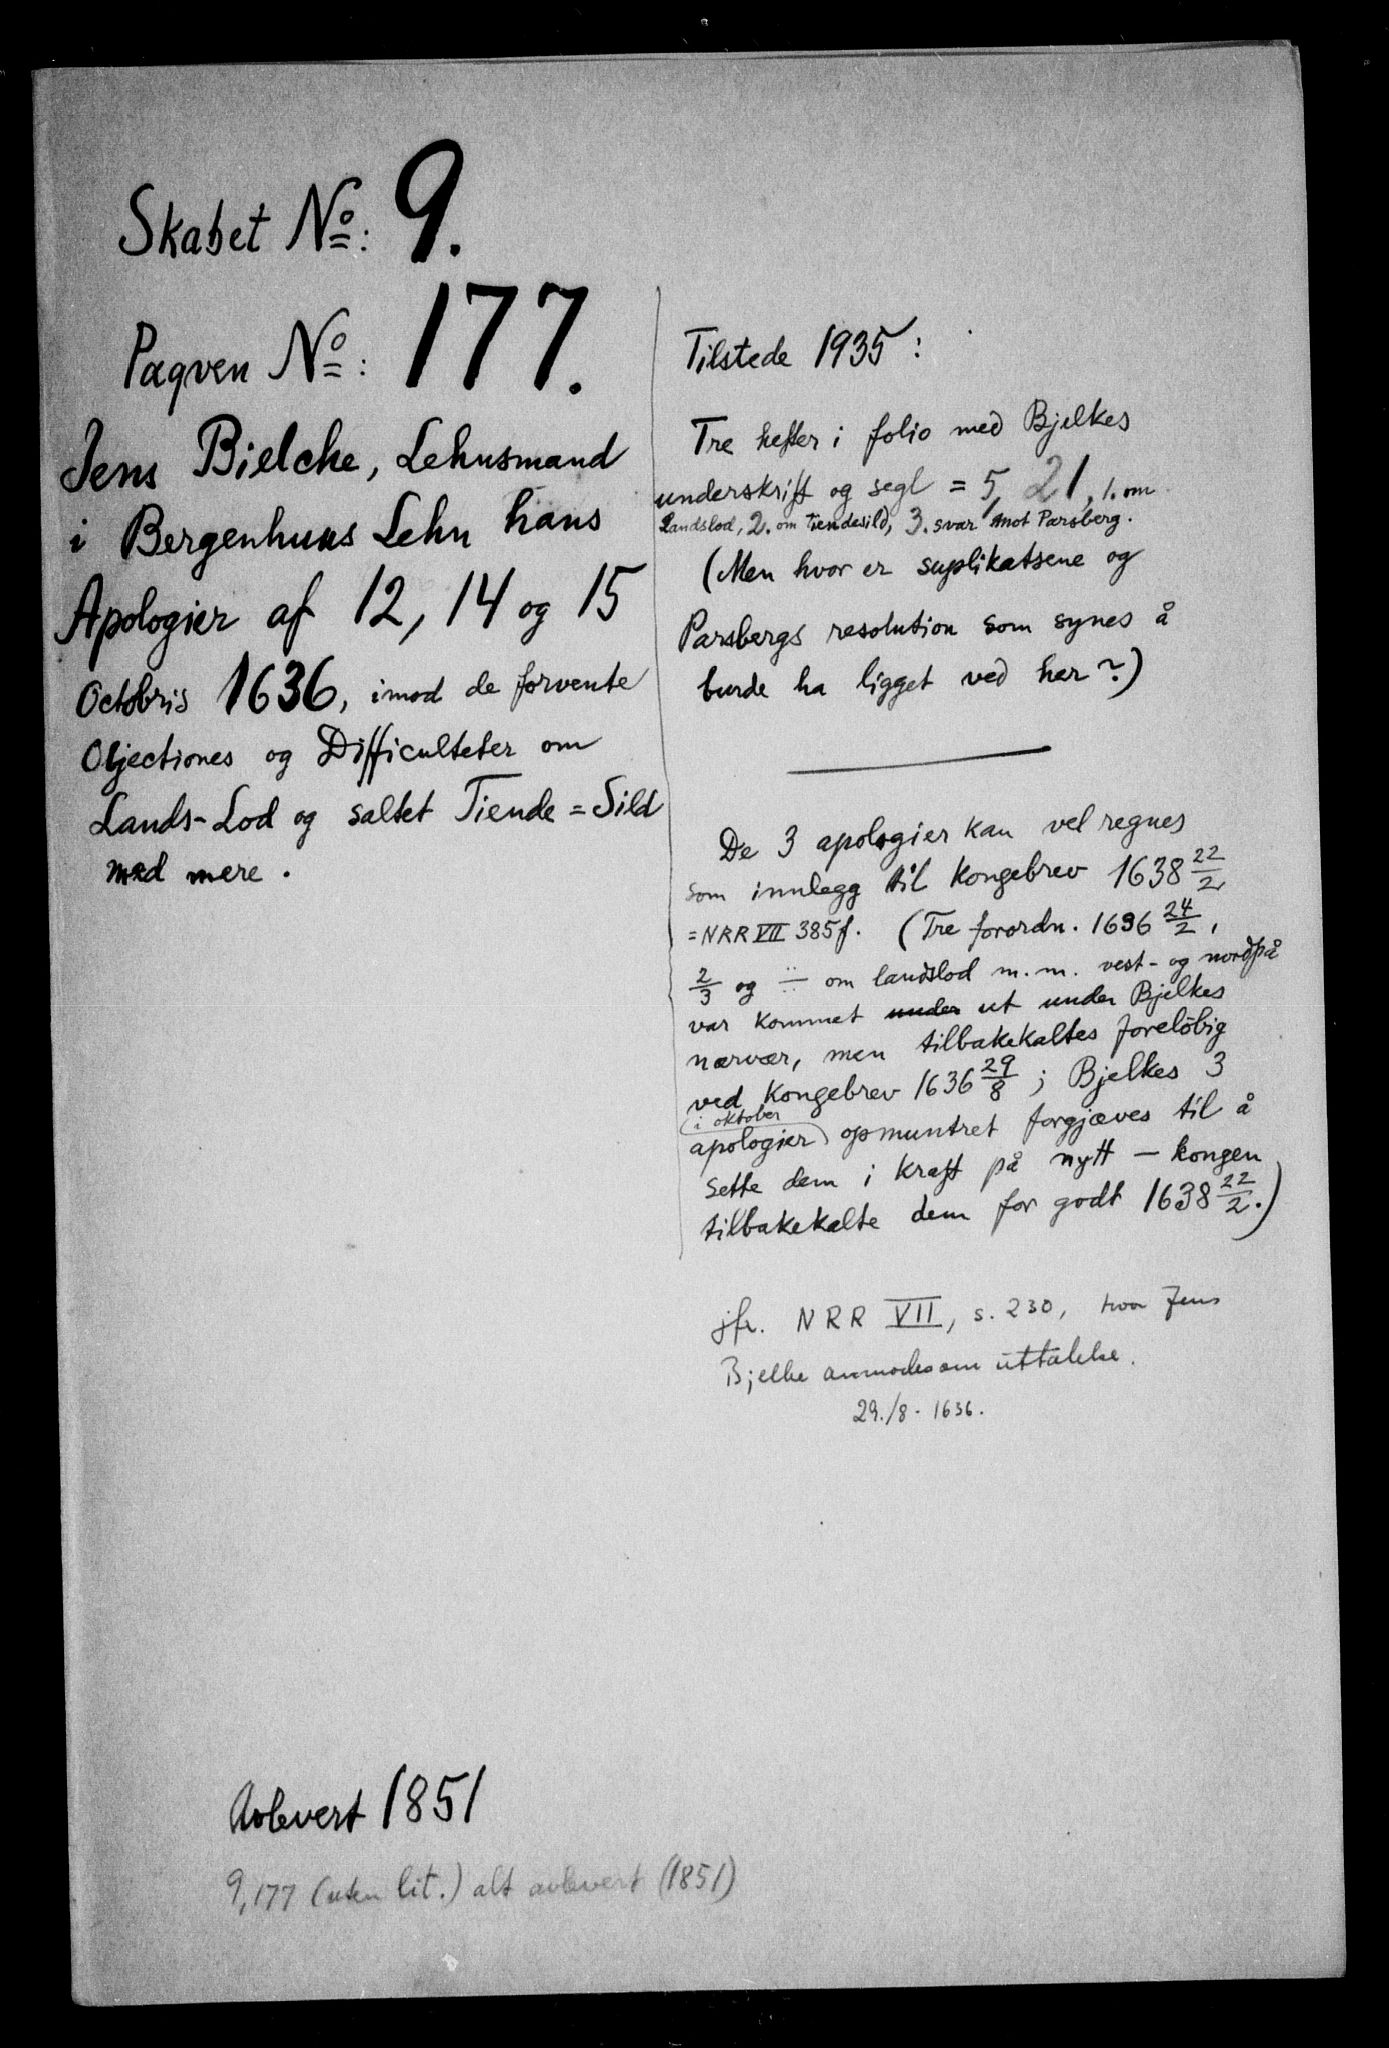 Skabet No: 9.
Paqven No: 177.
Jens Bielche, Lehnsmand
i Bergenhuus Lehn hans
Apologier af 12, 14 og 15
Octobris 1636, imod de forvente
Objectiones og Difficulteter om
Lands-Lod og saltet Tiende=Sild
med mere.
Tilstede 1935:
Tre hefter i folio med Bjelkes
underskrift og segl = 5, 21, 1. om
Landslod, 2. om tiendesild, 3. svar mot Parsberg.
(Men hvor er suplikatsene og
Parsbergs resolution som synes å
burde ha ligget ved her?)
De 3 apologier kan vel regnes
som innlegg til kongebrev 1638 22/2
= NRR VII 385f. (Tre forordn. 1636 24/2,
2/3 og ÷ om landslod m.m. vest- og nordpå
var kommet under ut under Bjelkes
nærvær, men tilbakekaltes foreløbig
ved kongebrev 1636 29/8; Bjelkes 3
i oktober
apologier opmuntret forgjæves til å
sette dem i kraft på nytt — kongen
tilbakekalte dem for godt 1638 22/2.)
jfr. NRR VII, s. 230, hvor Jens
Bjelke anmodes om uttalelse.
29./8. 1636.
Avlevert 1851
9,177 (uten lit.) alt avlevert (1851)